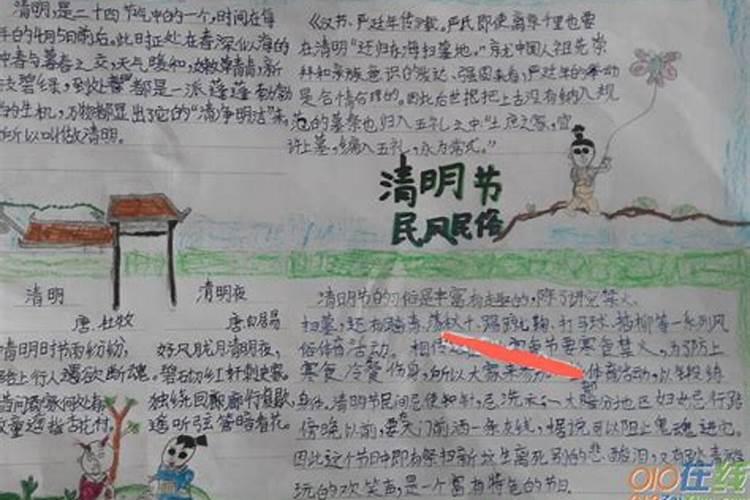 清明,是二十四节气中的一个,时间在每
年的4月5日前后。此时正处在春深似海的
仲春与暮春之交,天气暖和,
碧绿,到处都是一派蓬蓬勃勃
的生机,万物都显出它的“清净明洁”来,
所以叫做清明。
《汉书·严延年传》载。严氏即使离京千里也要
在清明“还归东海扫墓地。”就中国人祖先崇
拜和亲族意识的发达、强固来看,严延年的举动
是合情合理的。因此后世把把上古没有纳入规
范的墓祭也归入五礼之中“士庶之家,宜
许上墓,编入五礼,永为常式。”
清明节
民风民俗
清明
唐.杜牧
清明时节雨纷纷,
路上行人遇欲断魂。
借问酒家何处有
牧童遥指杏花村。
清明夜
唐白居易
好风胧月清明夜,
碧石切红轩刺史家。
独绕回廊廊行复歇,
遥听弦管暗看花。
清明节的习俗是丰富有趣的,除了讲究禁火、
扫墓,还有踏青、荡秋千、蹴鞠、打马球、插柳等一系列风
俗体育活动。相传 寒食节要寒食禁火,为防止
寒食冷餐伤身,所以大家来参加 体育活动,以锻炼
身体。清明节民间忌使和针,忌洗衣,大部分地区妇女忌行路
傍晚以前,要大门前洒一条灰线,据说可以阻止鬼魂进宅。
因此这个节日中即有祭扫新坟生离死别的悲酸泪,又有踏青游
玩的欢笑声,是一个富有特色的节日。
010在线